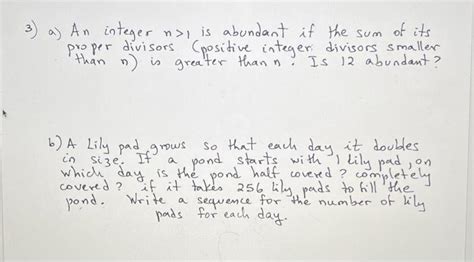 3) a) An integer n>1 is abundant if the sum of its
proper divisors (positive integer divisors smaller
than n) is greater than n. Is 12 abundant?
b) A Lily pad grows so that each day it doubles
in size. If a pond starts with 1 lily pad, on
which day is the pond half covered? completely
covered? if it takes 256 lily pads to fill the
pond. Write a sequence for the number of lily
pads for each day.